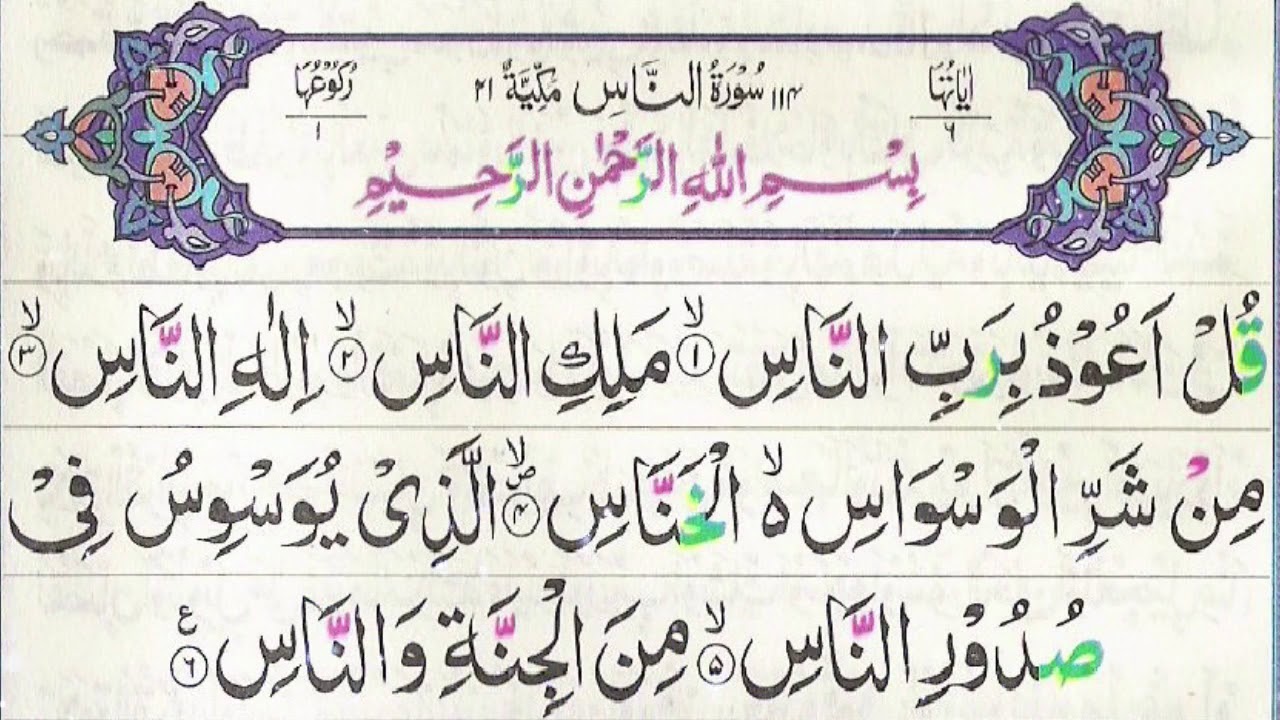 اٰيَاتُهَا ٦
١١٤ سُوْرَةُ النَّاسِ مَكِّيَّةٌ ٢١
رُكُوْعُهَا ١
بِسْمِ اللّٰهِ الرَّحْمٰنِ الرَّحِيْمِ
قُلْ اَعُوْذُ بِرَبِّ النَّاسِ ۙ﴿١﴾ مَلِكِ النَّاسِ ۙ﴿٢﴾ اِلٰهِ النَّاسِ ۙ﴿٣﴾
مِنْ شَرِّ الْوَسْوَاسِ ۙ۬ الْخَنَّاسِ ۪ۙ﴿٤﴾ الَّذِيْ يُوَسْوِسُ فِيْ
صُدُوْرِ النَّاسِ ۙ﴿٥﴾ مِنَ الْجِنَّةِ وَالنَّاسِ ﴿٦﴾ ع